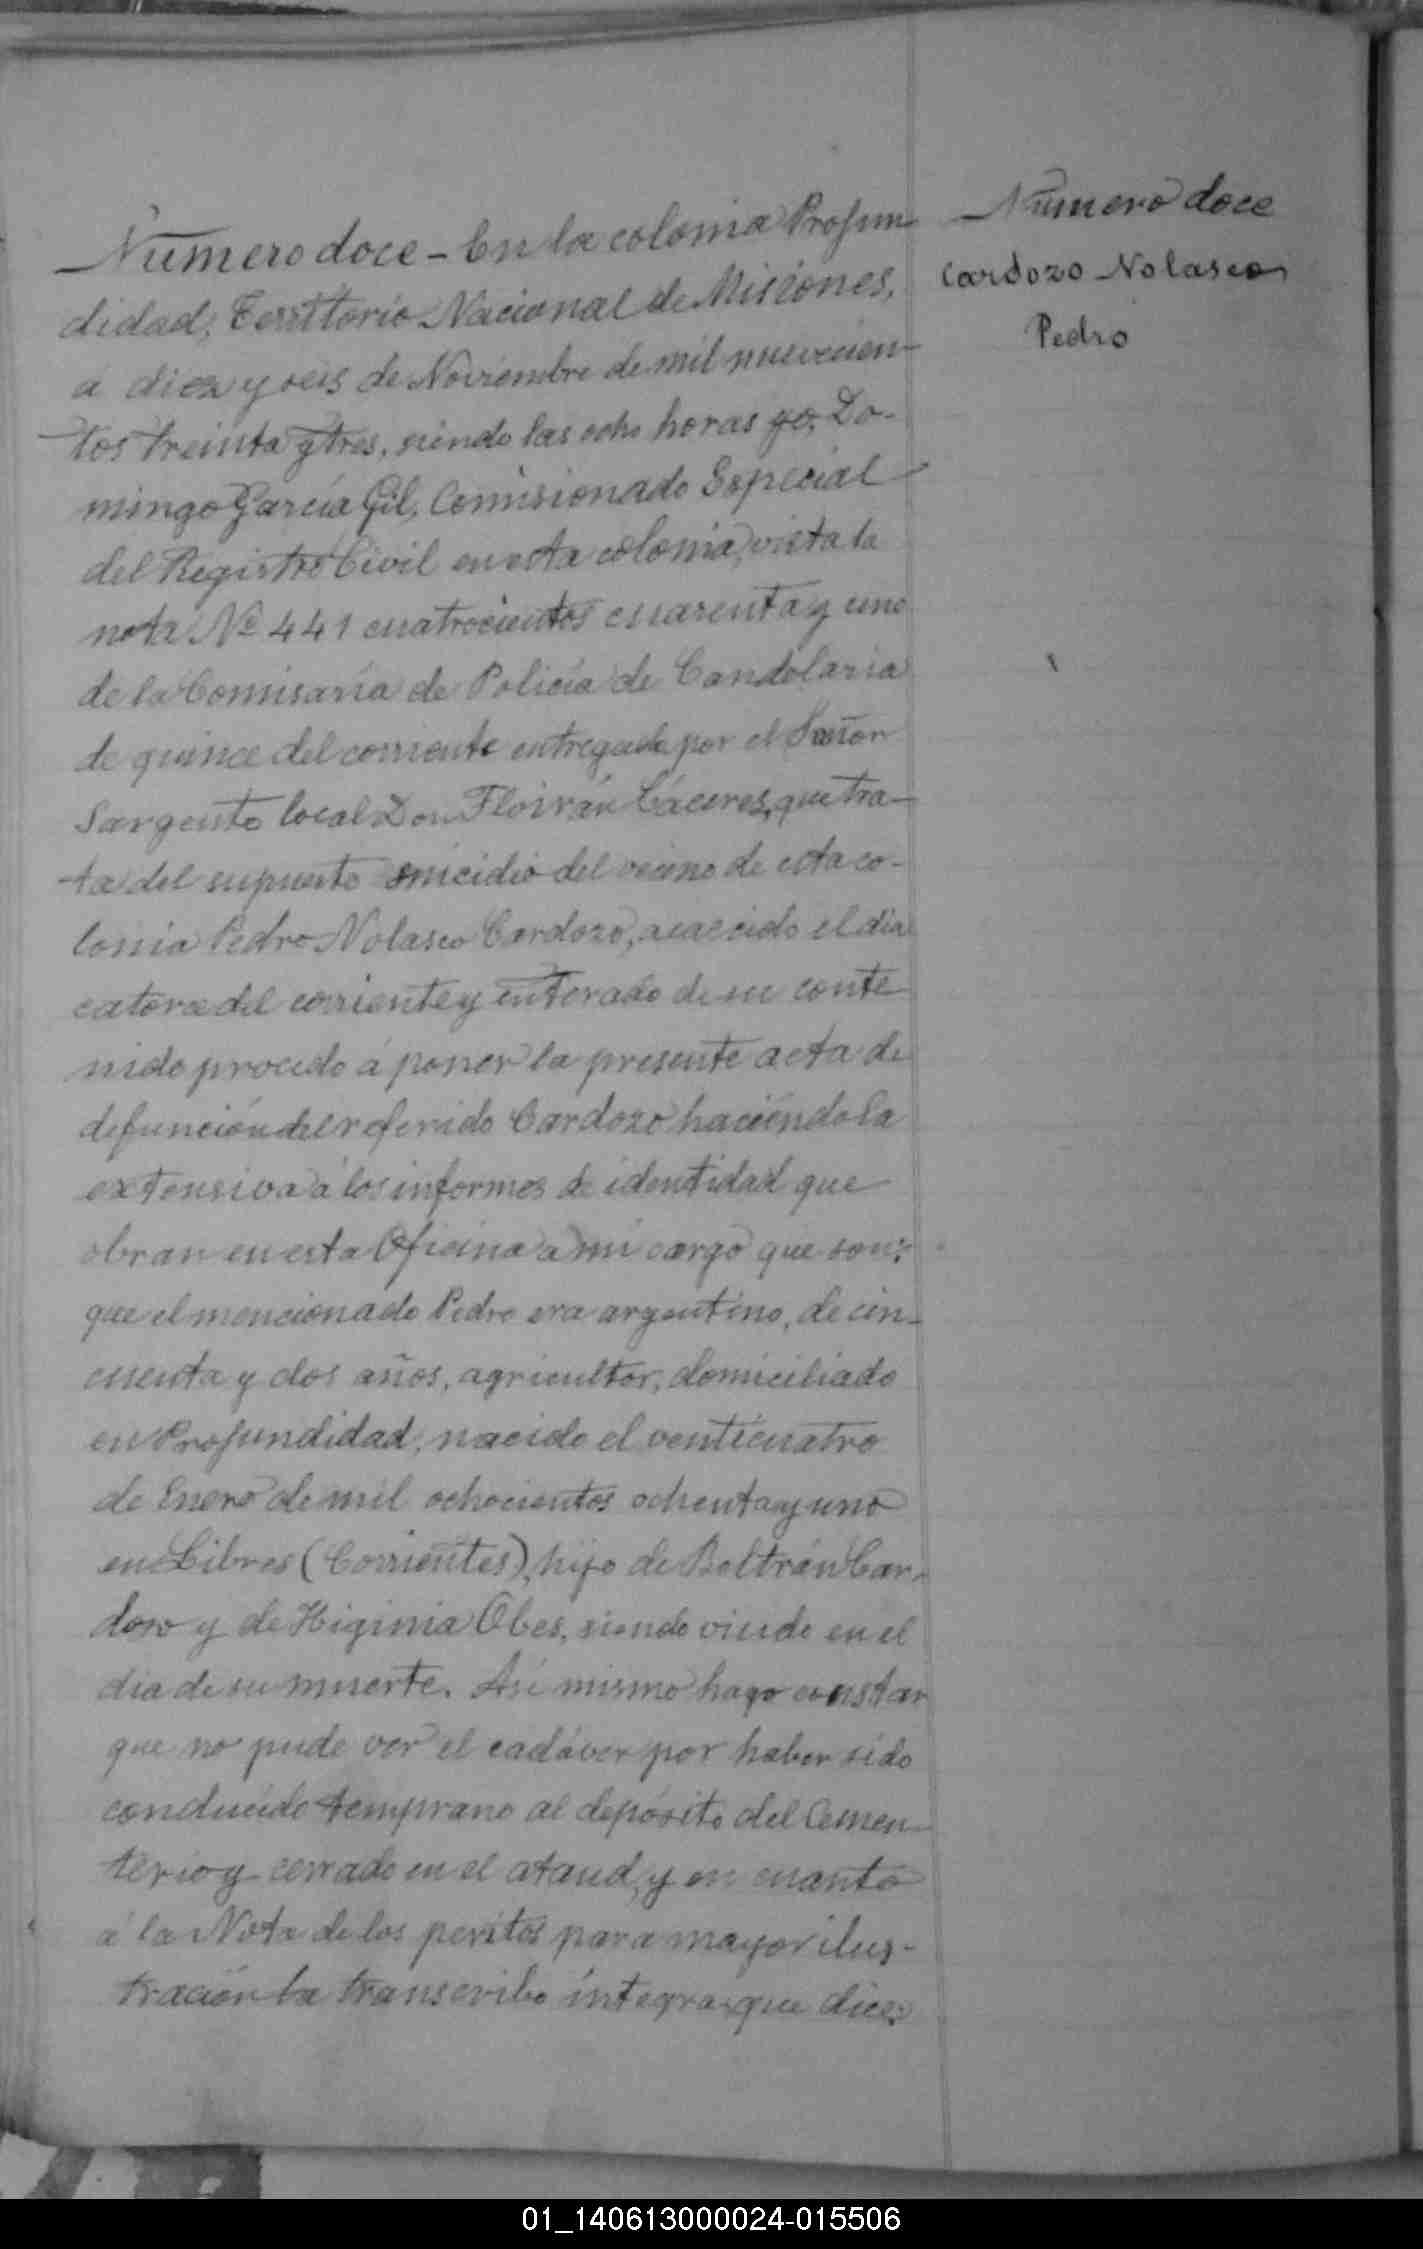 Número doce - En la colonia Profun
didad, Territorio Nacional de Misiones,
á diez y seis de Noviembre de mil novecien-
tos treinta y tres, siendo las ocho horas yo, Do-
mingo García Gil, Comisionado Especial
del Registro Civil en esta colonia, vista la
nota Nº 441 cuatrocientos cuarenta y uno
de la Comisaría de Policía de Candelaria
de quince del corriente entregada por el Señor
Sargento local Don Floirán Cáceres, que tra-
ta del supuesto suicidio del vecino de esta co-
lonia Pedro Nolasco Cardozo, acaecido el día
catorce del corriente y enterado de su conte
nido procedo á poner la presente acta de
defunción del referido Cardozo haciéndola
extensiva á los informes de identidad que
obran en esta Oficina a mi cargo que son:
que el mencionado Pedro era argentino, de cin-
cuenta y dos años, agricultor, domiciliado
en Profundidad, nacido el venticuatro
de Enero de mil ochocientos ochenta y uno
en Libres (Corrientes), hijo de Beltrán Car-
dozo y de Higinia Obes, siendo viudo en el
día de su muerte. Así mismo hago constar
que no pude ver el cadáver por haber sido
conducido temprano al depósito del Cemen-
terio y cerrado en el ataud, y en cuanto
á la Nota de los peritos para mayor ilus-
tración la transcribo íntegra, que dice:
Número doce
Cardozo Nolasco
Pedro
01_140613000024-015506